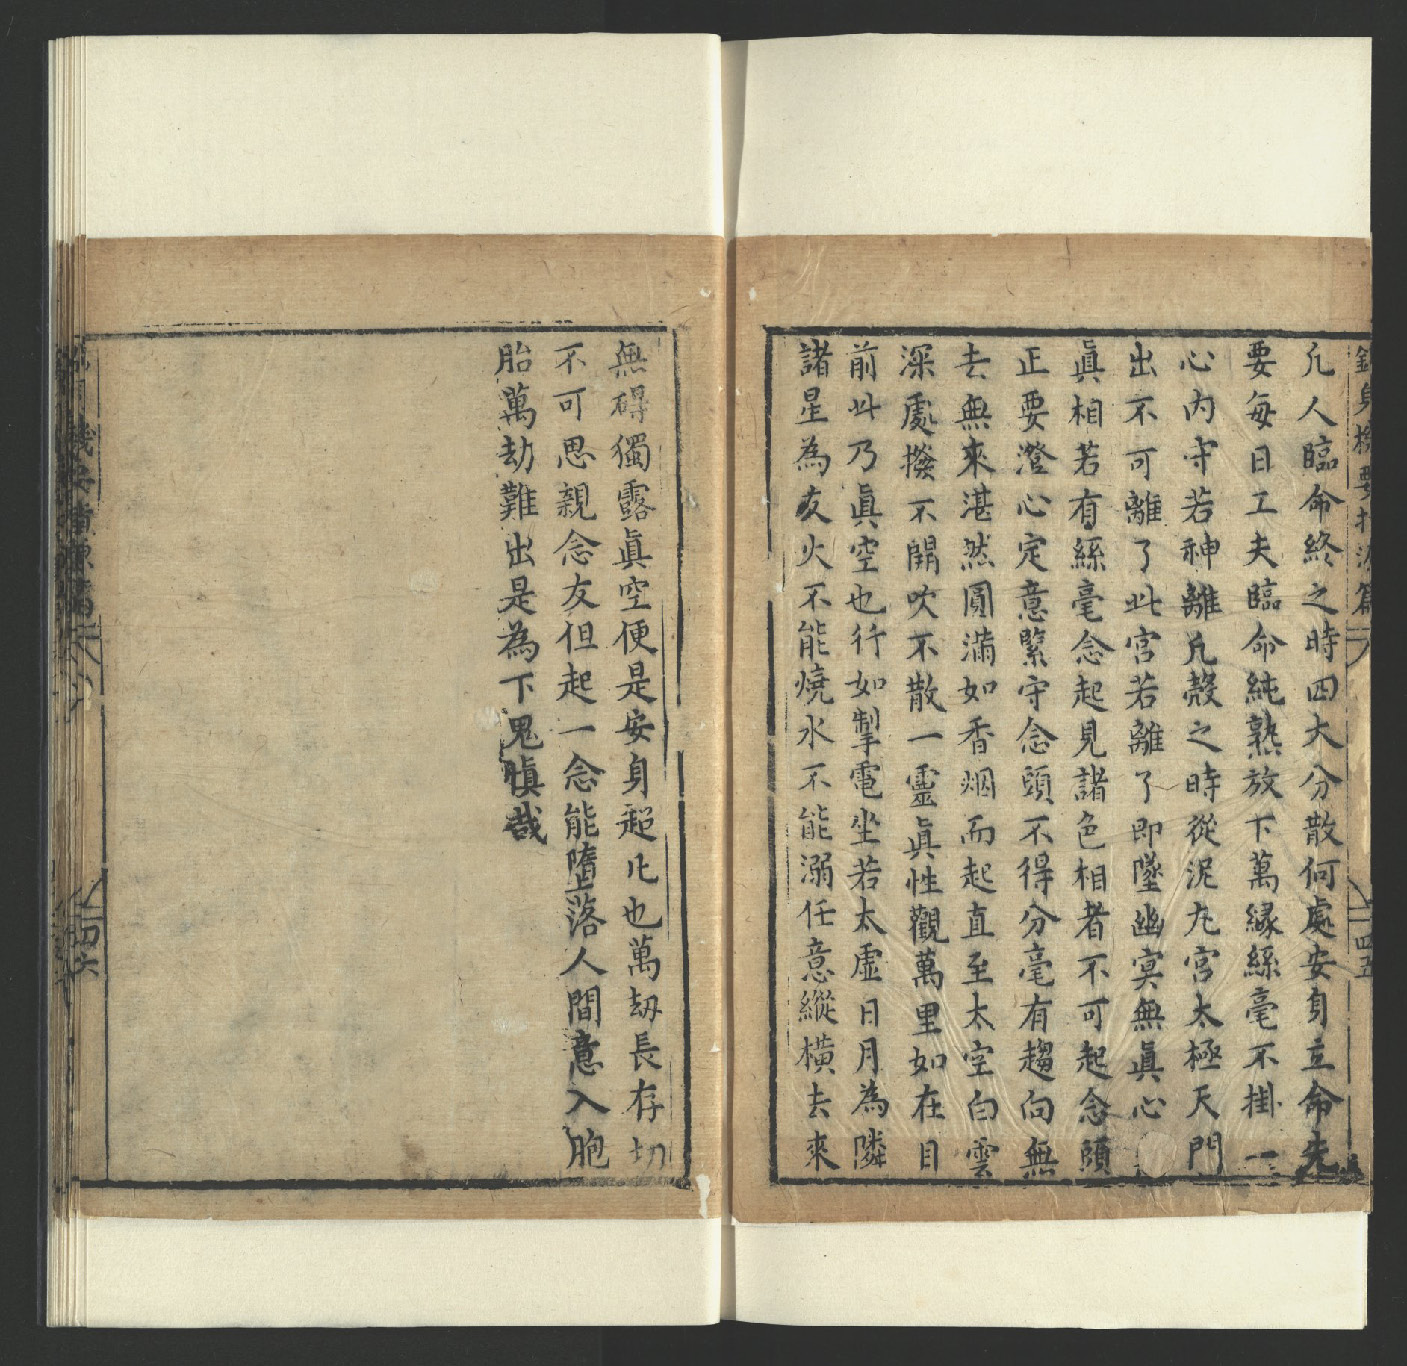 凢人臨命終之時四大分散何處安身立命先
要每日工夫臨命純熟放下萬緣絲毫不掛一
心內守若神離凢殼之時從泥九宮太極天門
出不可離了此宮若離了即墜幽㝠無眞心
眞相若有絲毫念起見諸色相者不可起念頭
正要澄心定意緊守念頭不得分毫有趨向無
去無來湛然圓滿如香烟而起直至太空白雲
深處撥不開吹不散一靈眞性觀萬里如在目
前此乃眞空也行如掣電坐若太虛日月為隣
諸星為友火不能燒水不能溺任意縱橫去來
無碍獨露眞空便是安身超凡也萬劫長存切
不可思親念友但起一念能墮落人間意入胞
胎萬劫難出是為下鬼慎哉